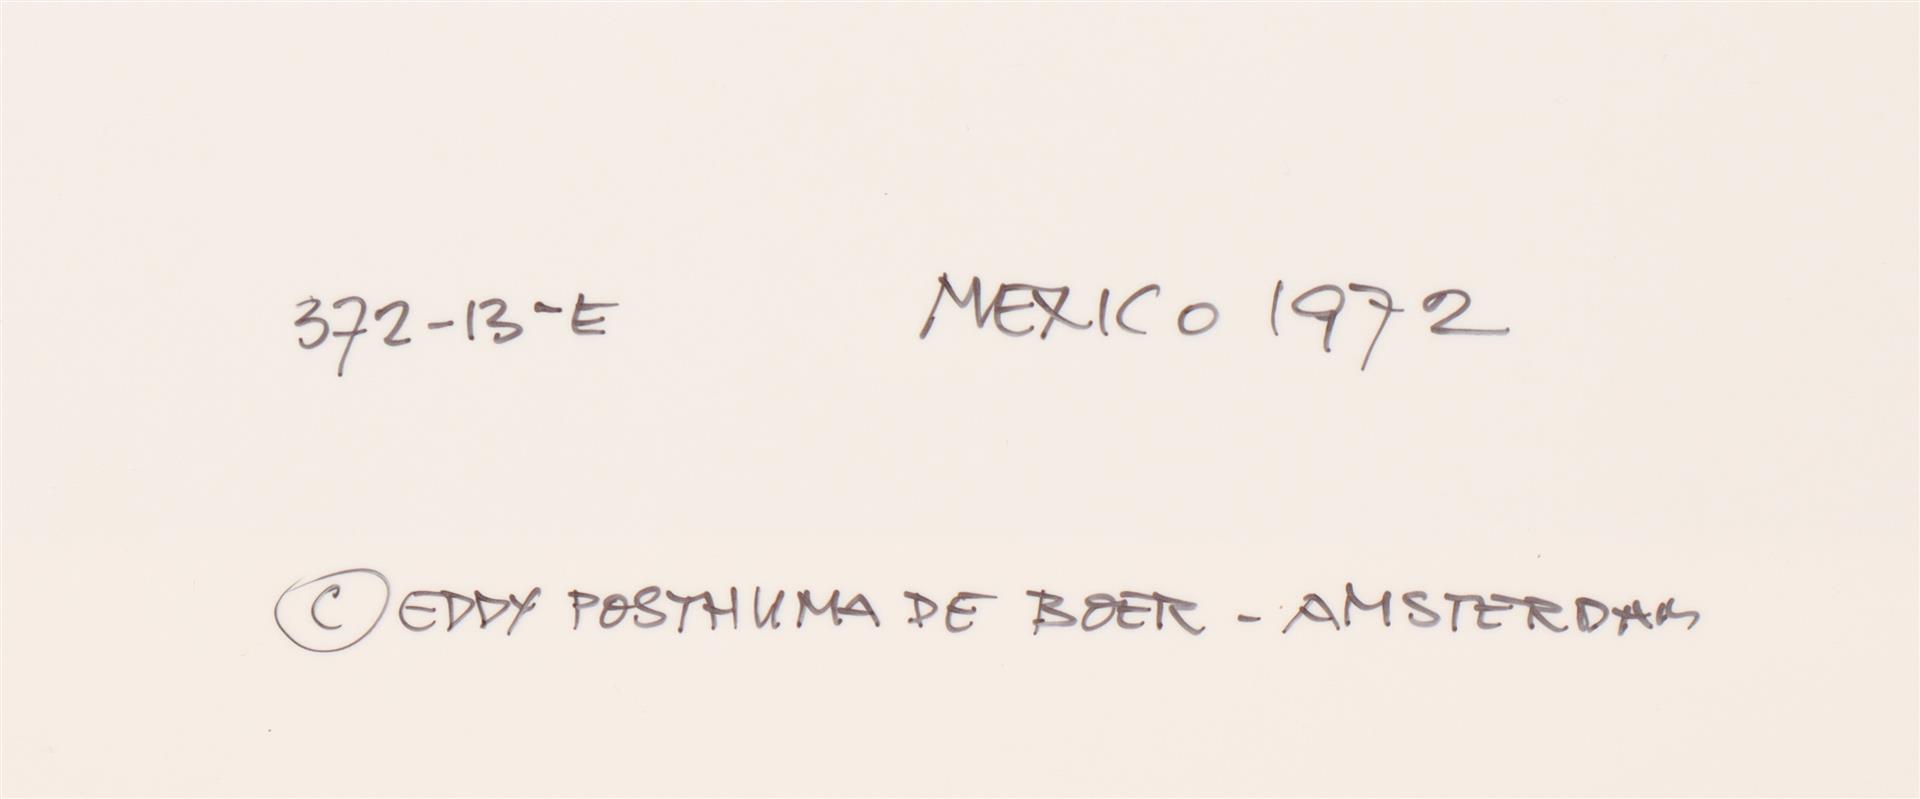 372-13-E MEXICO 1972
© EDDY POSTHUMA DE BOER - AMSTERDAM